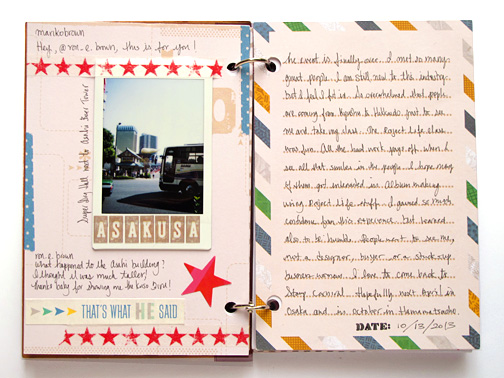 marikobrown
Hey, @ron_e_brown, this is for you!
Super Dry Hall next to Asahi Beer Tower
ASAKUSA
ron_e_brown
what happened to the Asahi building?
I thought it was much taller!
thanks baby for sharing
THAT'S WHAT HE SAID
The event is finally over. I met so many
great people. I am still new to the industry
but I feel I fit in. So overwhelmed that people
are coming from Kyushu to Hokkaido just to see
me and take my class. The Project Life class
was fun. All the hard work pays off when I
see all that smiles in the people. I hope many
of them got interested in album making
using Project Life stuff. I gained so much
confidence from this experience but learned
also to be humble. People want to see me,
not a designer, buyer or a stuck up
business woman. I love to come back to
Stamp Carnival. Hopefully next April in
Osaka and in October in Hamamatsucho.
DATE: 10/13/2013